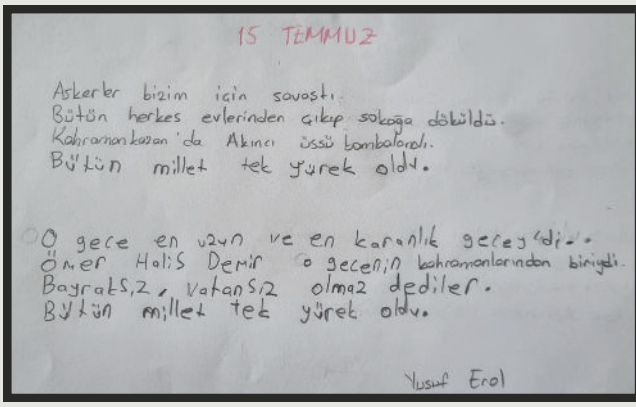 15 TEMMUZ
Askerler bizim için savaştı.
Bütün herkes evlerinden çıkıp sokağa döküldü.
Kahramankazan'da Akıncı üssü bombalandı.
Bütün millet tek yürek oldu.
O gece en uzun ve en karanlık gecey'di..
Ömer Halis Demir o gecenin kahramanlarından biriydi.
Bayraksız, vatansız olmaz dediler.
Bütün millet tek yürek oldu.
Yusuf Erol